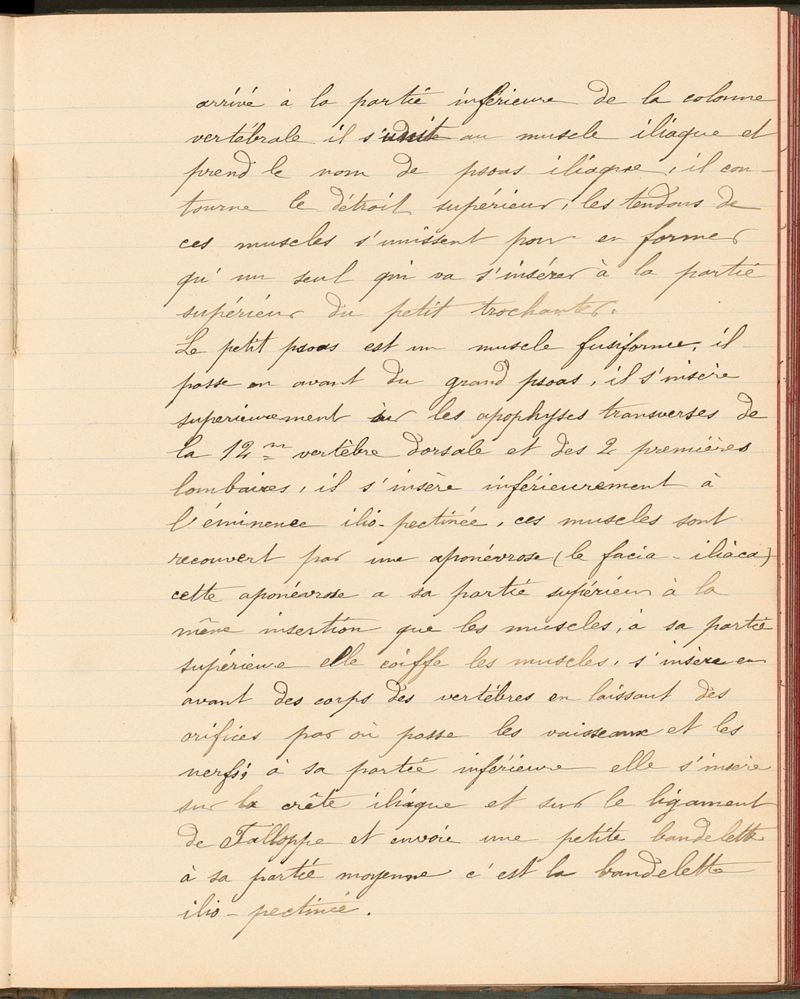 arrivé à la partie inférieure de la colonne
vertébrale il s'unit au muscle iliaque et
prend le nom de psoas iliaque, il con-
tourne le détroit supérieur, les tendons de
ces muscles s'unissent pour en former
qu'un seul qui va s'insérer à la partie
supérieur du petit trochanter.
Le petit psoas est un muscle fusiforme, il
passe en avant du grand psoas, il s'insère
superieurement sur les apophyses transverses de
la 12m vertèbre dorsale et des 2 premières
lombaires, il s'insère inférieurement à
l'éminence ilio-pectinée, ces muscles sont
recouvert par une aponévrose (le facia-iliaca)
cette aponévrose a sa partie supérieur à la
même insertion que les muscles, à sa partie
supérieure elle coiffe les muscles, s'insère en
avant des corps des vertèbres en laissant des
orifices par où passe les vaisseaux et les
nerfs; à sa partie inférieure elle s'insère
sur la crête iliaque et sur le ligament
de Falloppe et envoie une petite bandelette
à sa partie moyenne c'est la bandelette
ilio-pectinée.